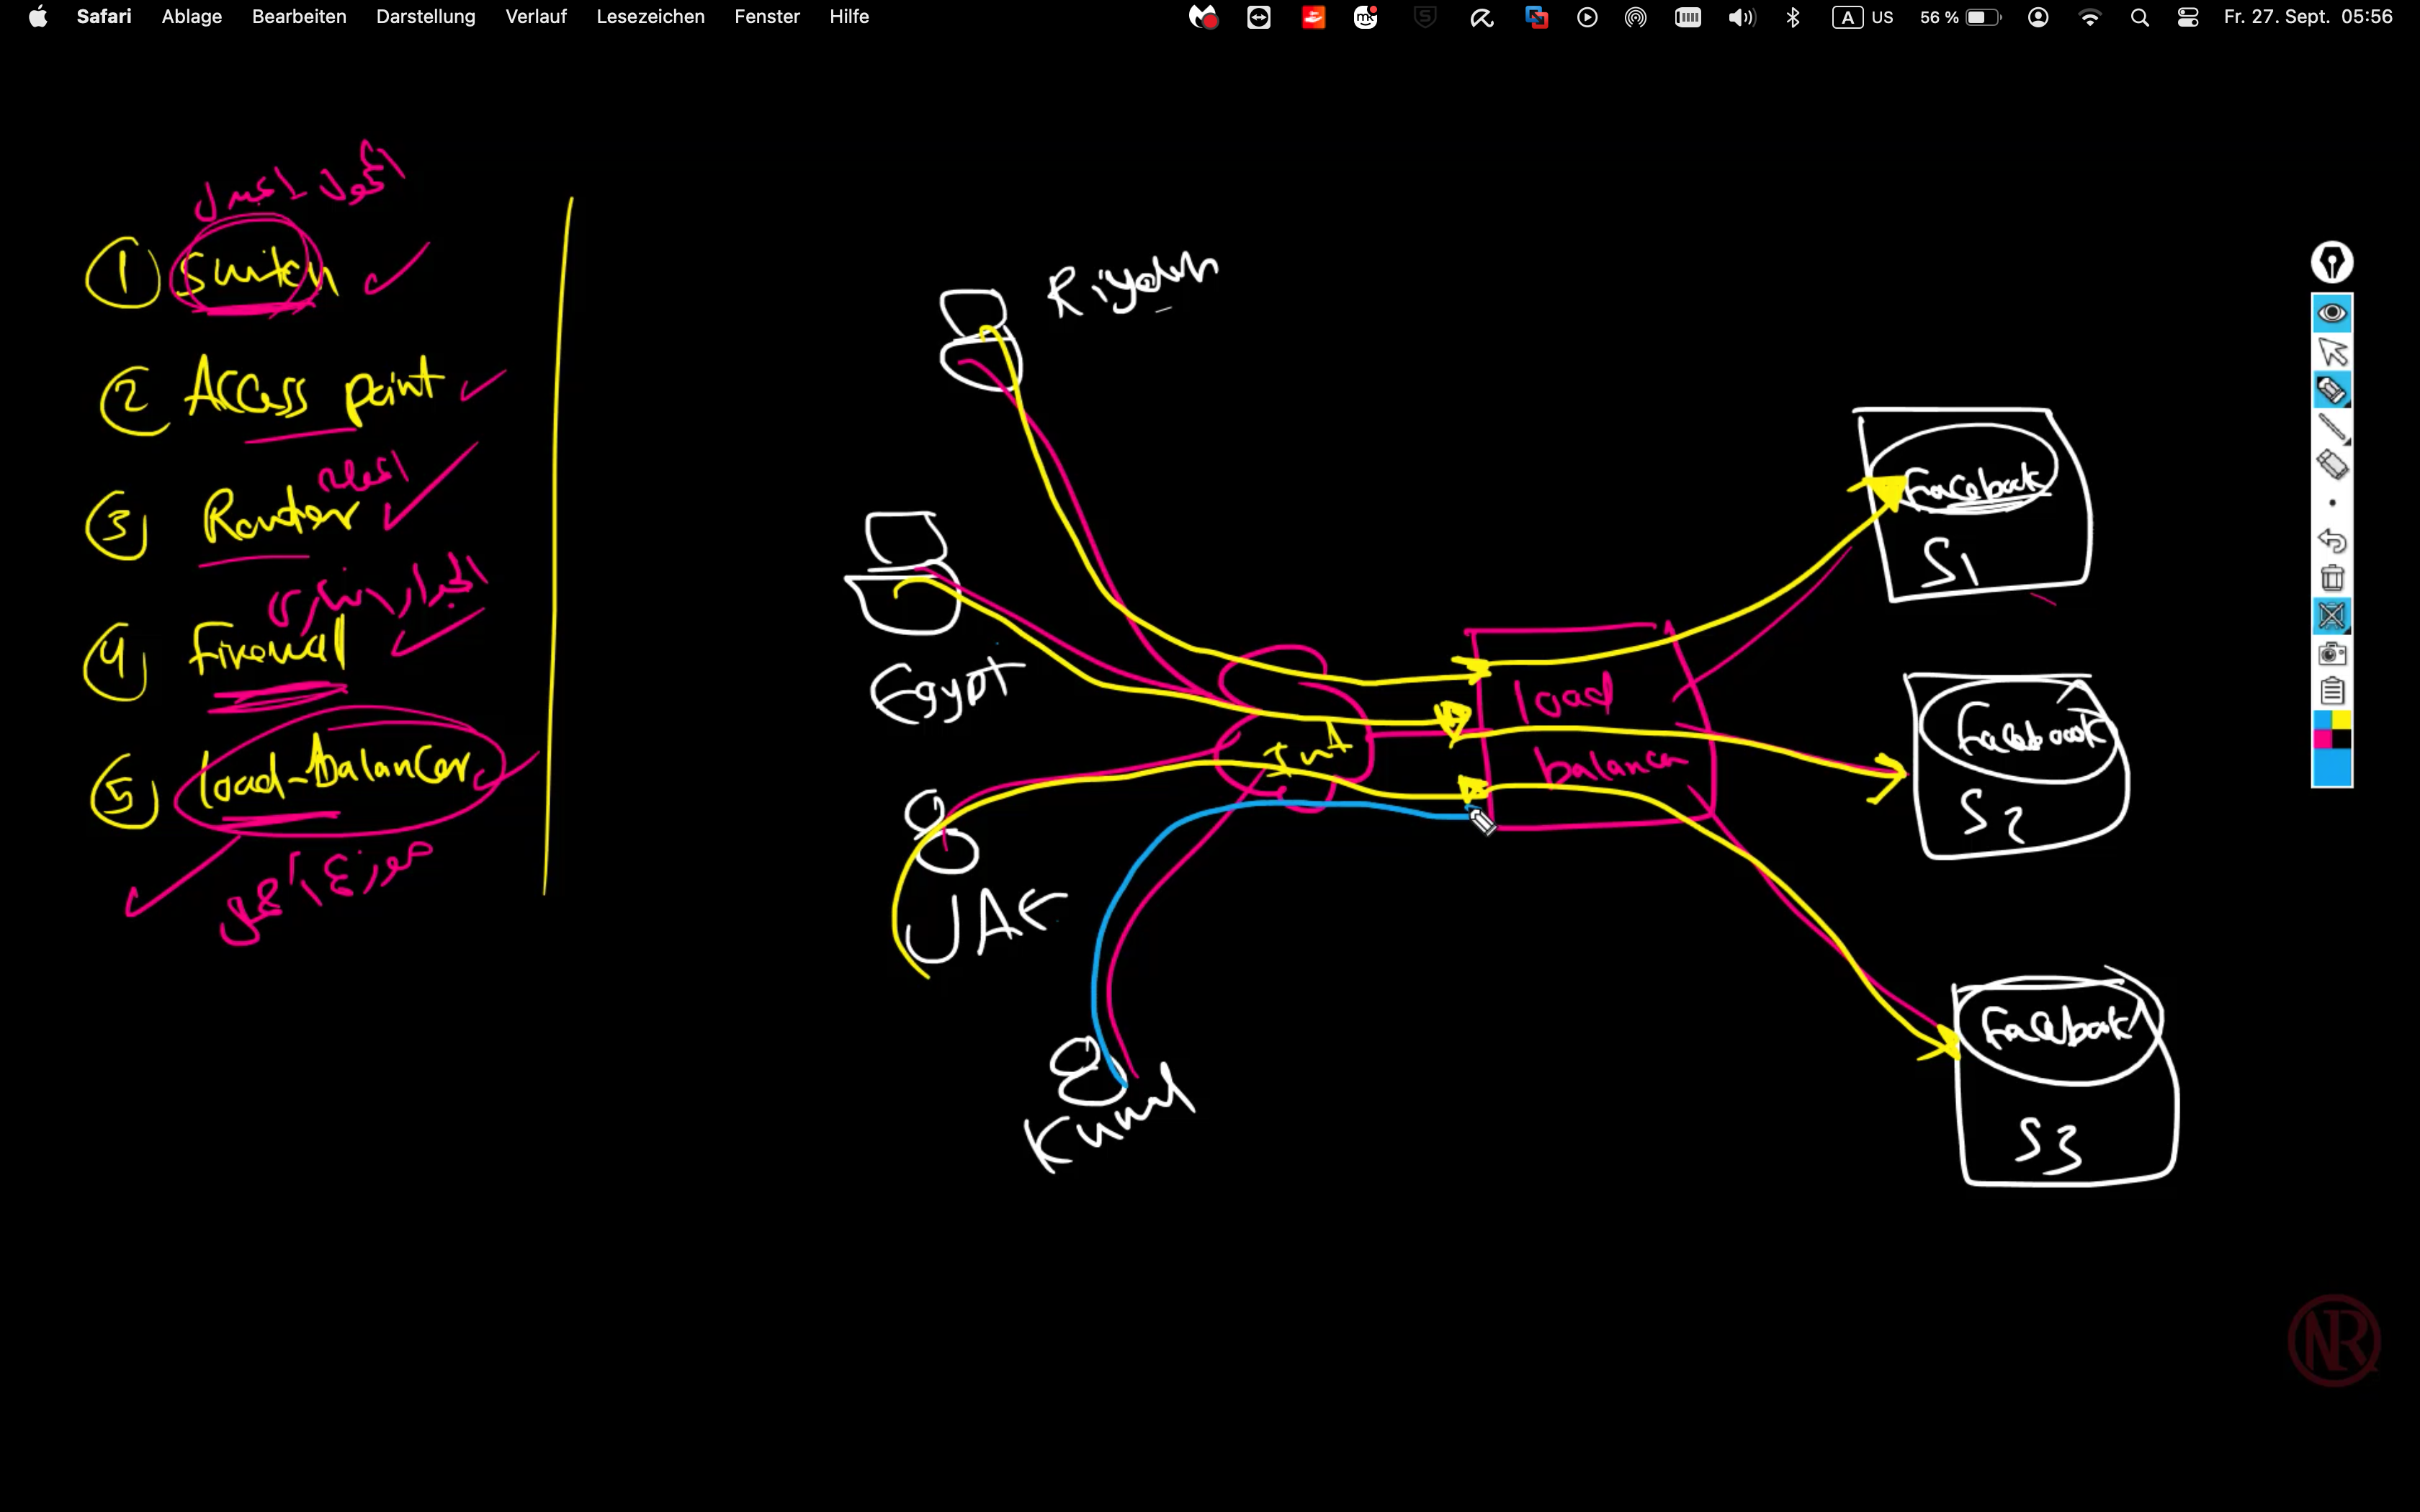 Safari Ablage Bearbeiten Darstellung Verlauf Lesezeichen Fenster Hilfe
A US 56 % Fr. 27. Sept. 05:56
① Switch
② Access point
③ Router
④ Firewall
الجدار الناري
⑤ load-balancer
موزع الحمل
Riyadh
Egypt
UAE
Int
load
balancer
Facebook
S1
Facebook
S2
Facebook
S3
NR